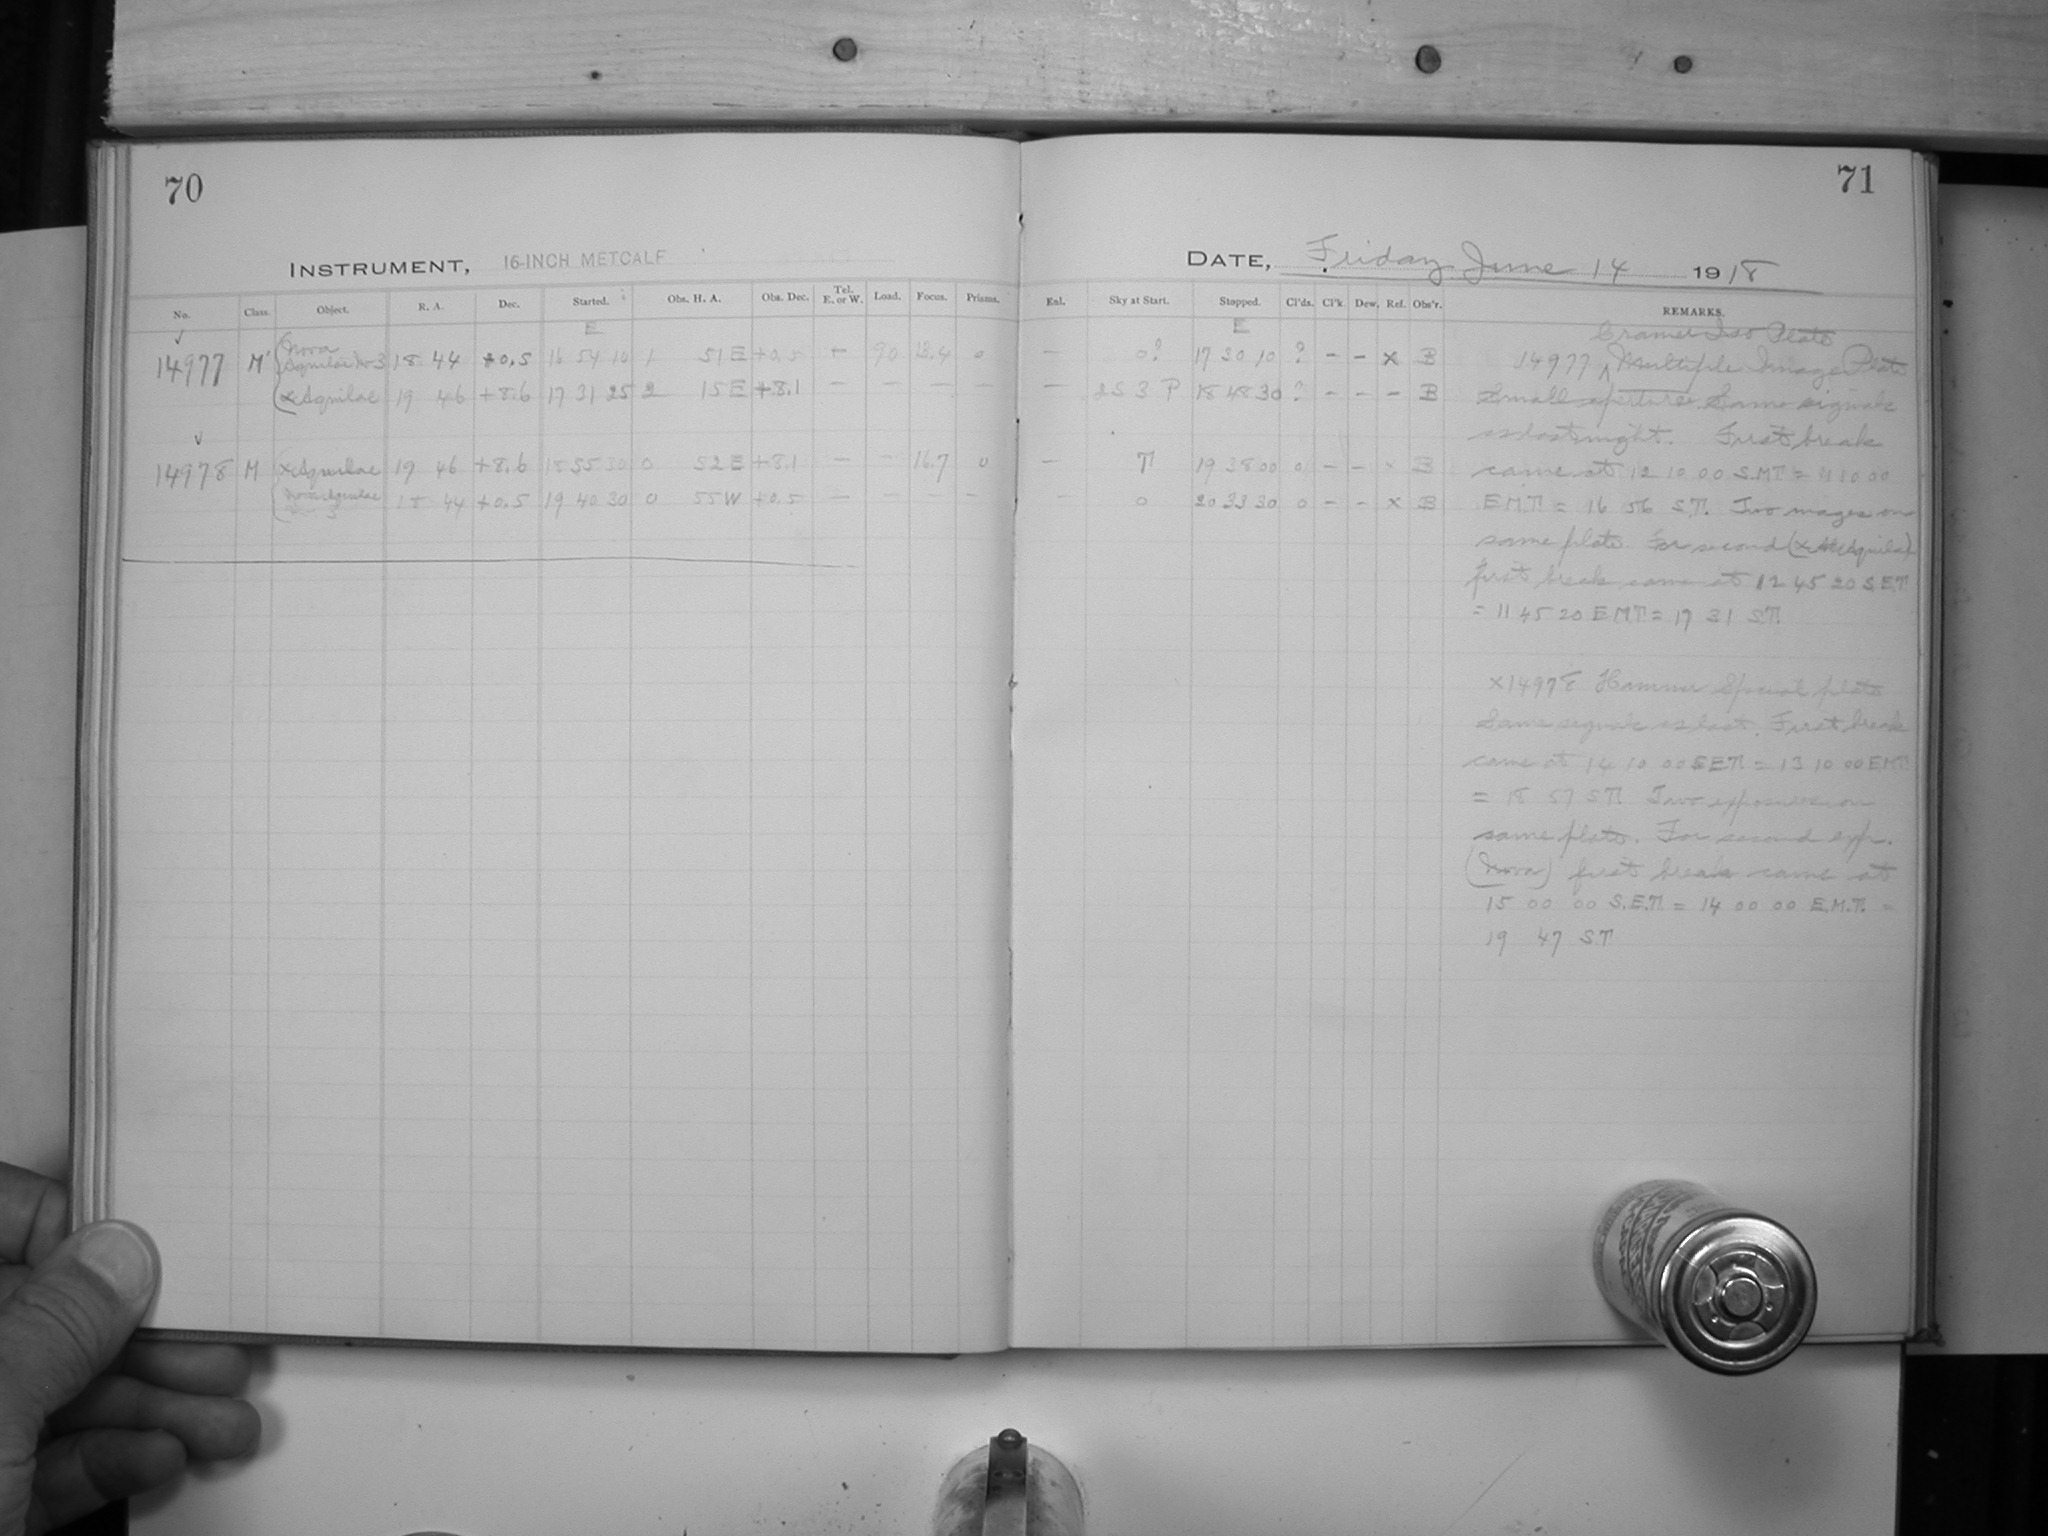 70
71
INSTRUMENT, 16-INCH METCALF
DATE, Friday June 14 1918
No. Class. Object. R. A. Dec. Started. Obs. H. A. Obs. Dec. Tel. E. or W. Load. Focus. Prisms. Enl. Sky at Start. Stopped. Cl'ds. Cl'k. Dew. Ref. Obs'r. REMARKS.
E E
14977 M Nova Aquilae No 3 18 44 +0.5 16 54 10 1 51 E +0.5 - 90 13.4 0 - 0? 17 30 10 ? - - x B
α Aquilae 19 46 +8.6 17 31 25 2 15 E +8.1 - - - - - 2S 3 P 18 48 30 ? - - - B
14978 M α Aquilae 19 46 +8.6 18 55 30 0 52 E +8.1 - - 16.7 0 - T 19 38 00 0 - - x B
Nova Aquilae 18 44 +0.5 19 40 30 0 55 W +0.5 - - - - - 0 20 33 30 0 - - x B
Cramer Iso Plate
14977 Multiple Image Plate
Small aperture. Same signals
as last night. First break
came at 12 10 00 S.M.T. = 11 10 00
E.M.T. = 16 56 S.T. Two images on
same plate. For second (α Aquilae)
first break came at 12 45 20 S.E.T.
= 11 45 20 E.M.T. = 17 31 S.T.
x14978 Hammer Special plate
Same signals as last. First break
came at 14 10 00 S.E.T. = 13 10 00 E.M.T.
= 18 57 S.T. Two exposures on
same plate. For second exp.
(Nova) first break came at
15 00 00 S.E.T. = 14 00 00 E.M.T. =
19 47 S.T.